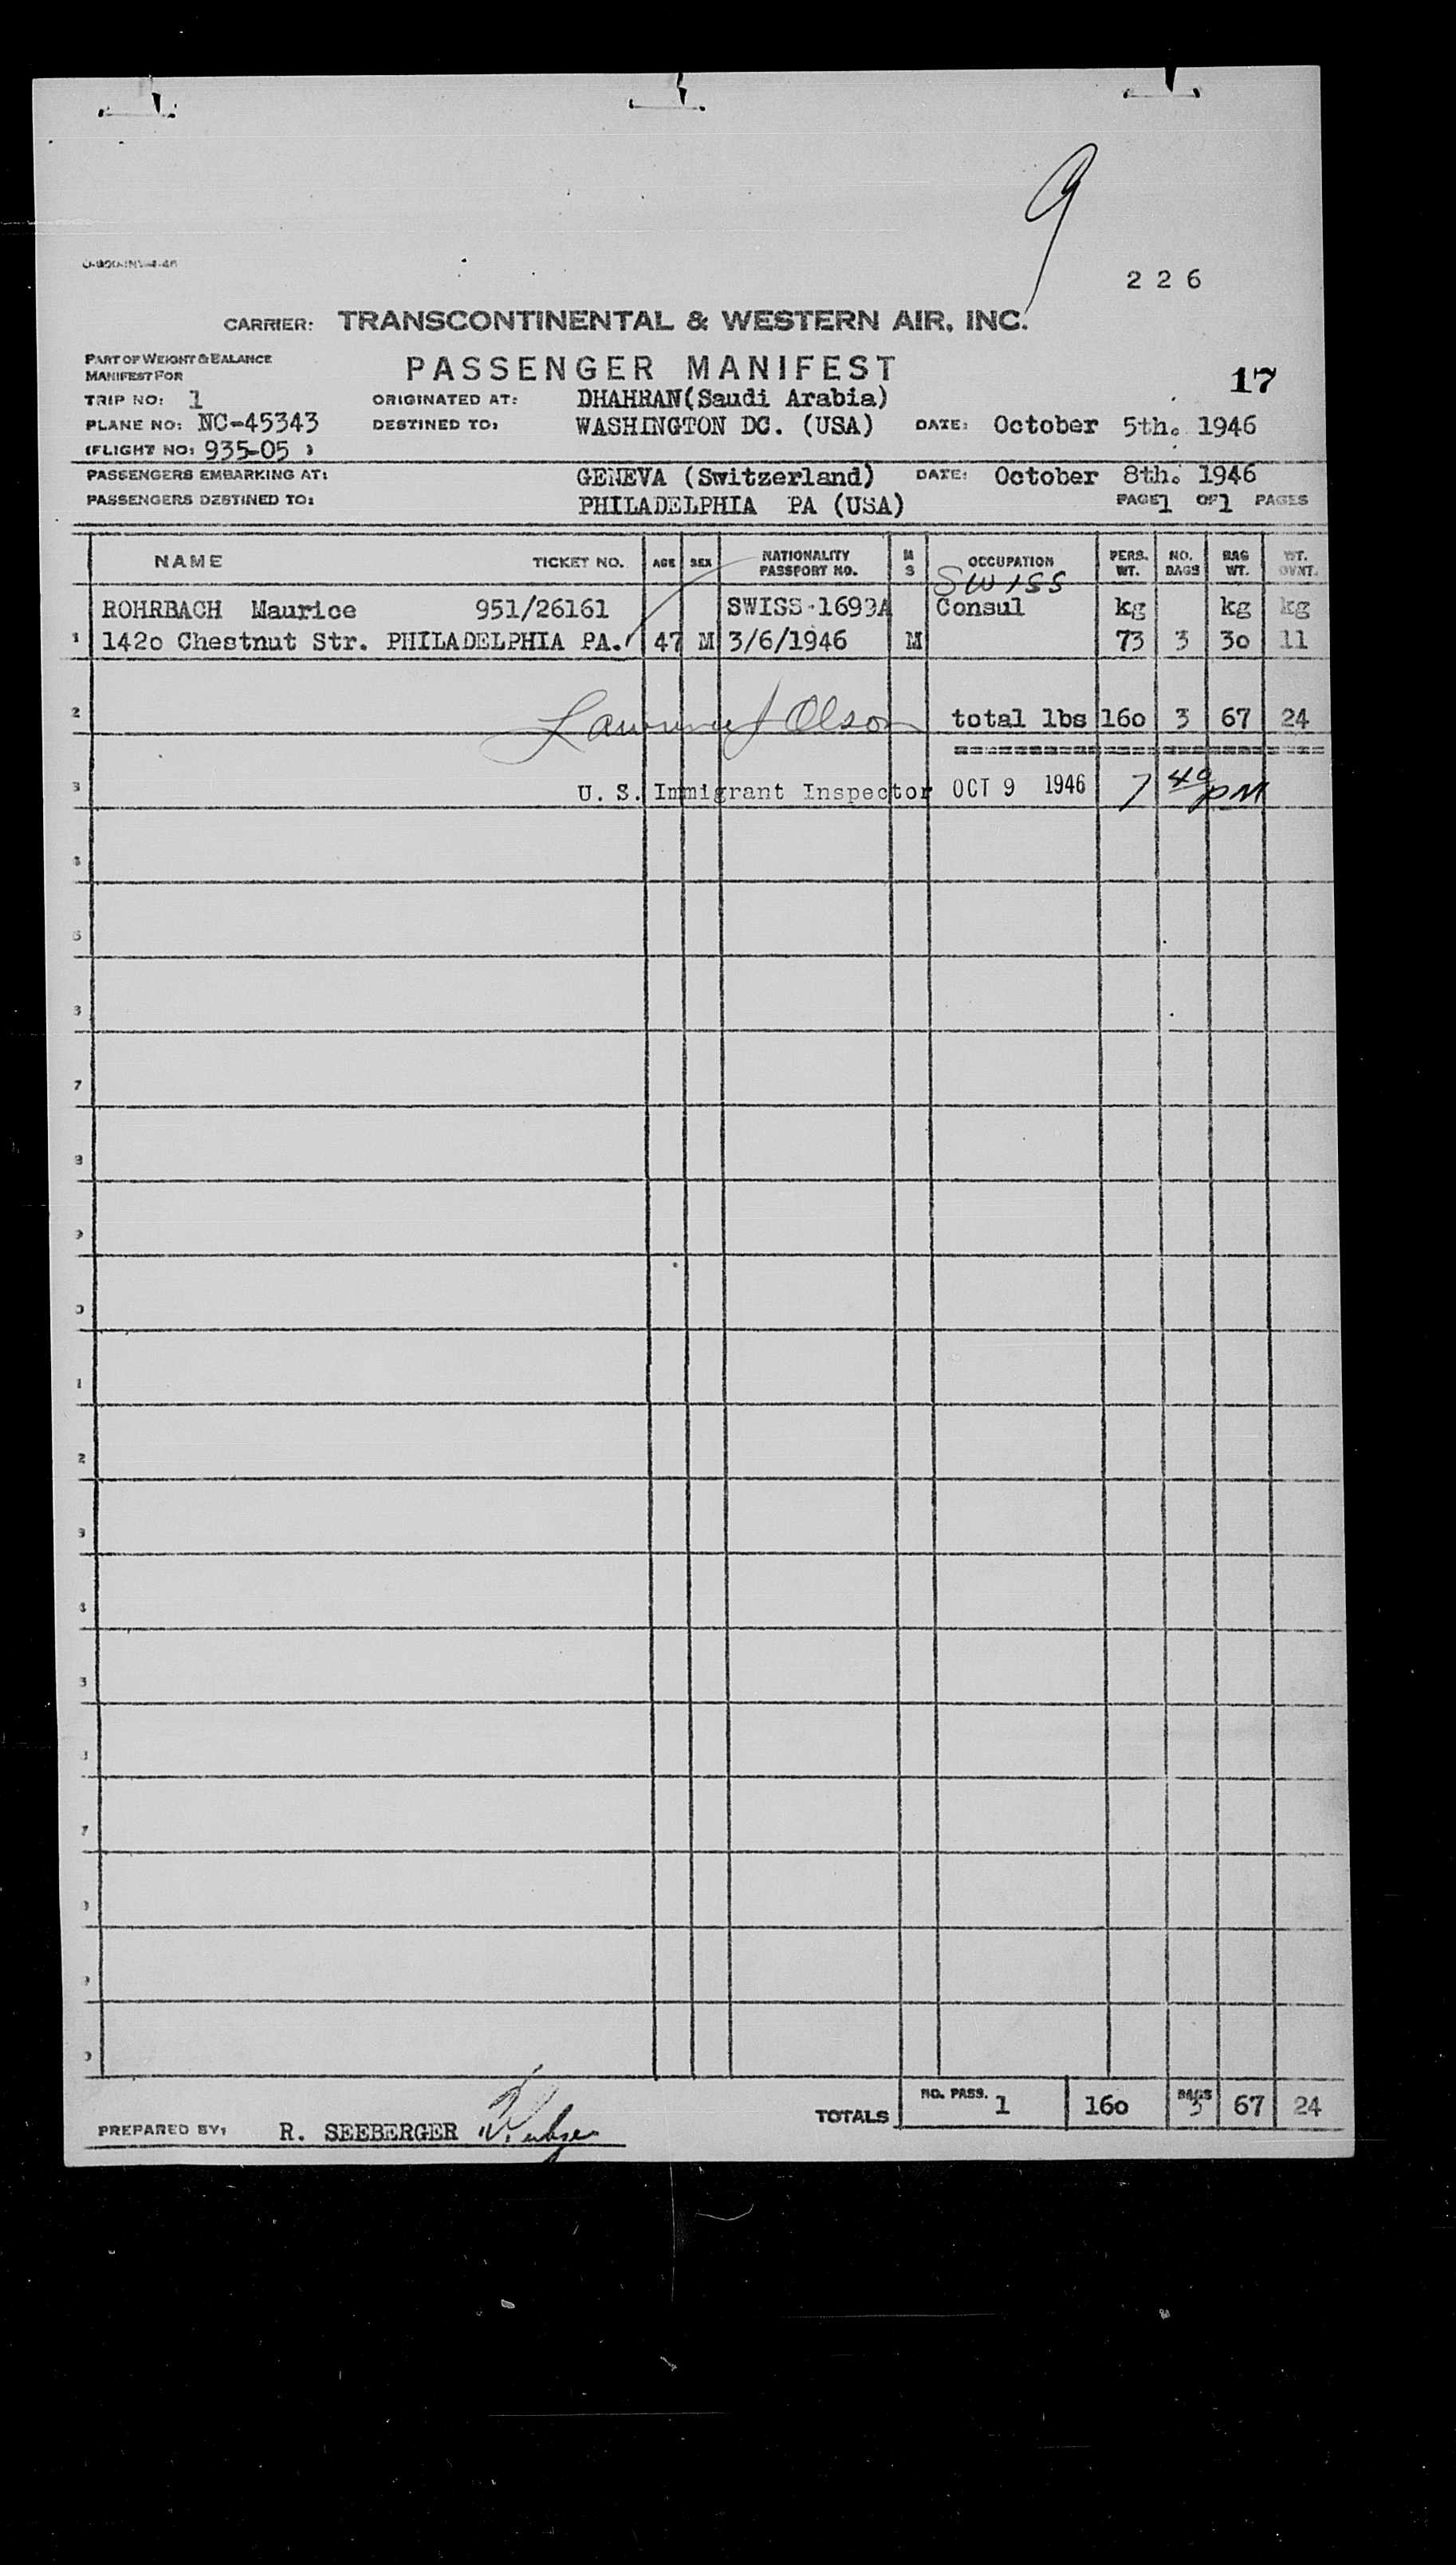 9
226
CARRIER: TRANSCONTINENTAL & WESTERN AIR, INC.
PART OF WEIGHT & BALANCE
MANIFEST FOR
PASSENGER MANIFEST
17
TRIP NO: 1 ORIGINATED AT: DHAHRAN(Saudi Arabia)
PLANE NO: NC-45343 DESTINED TO: WASHINGTON DC. (USA) DATE: October 5th. 1946
(FLIGHT NO: 935-05 )
PASSENGERS EMBARKING AT: GENEVA (Switzerland) DATE: October 8th. 1946
PASSENGERS DESTINED TO: PHILADELPHIA PA (USA) PAGE 1 OF 1 PAGES
NAME TICKET NO. AGE SEX NATIONALITY PASSPORT NO. M S OCCUPATION PERS. WT. NO. BAGS BAG WT. WT. OVNT.
Swiss
ROHRBACH Maurice 951/26161 SWISS-1699A Consul kg kg kg
1 142o Chestnut Str. PHILADELPHIA PA. 47 M 3/6/1946 M 73 3 3o 11
2 Lawrence J Olson total lbs 16o 3 67 24
3 U. S. Immigrant Inspector OCT 9 1946 7 40 PM
7
9
1
2
7
TOTALS NO. PASS. 1 16o BAGS 3 67 24
PREPARED BY: R. SEEBERGER